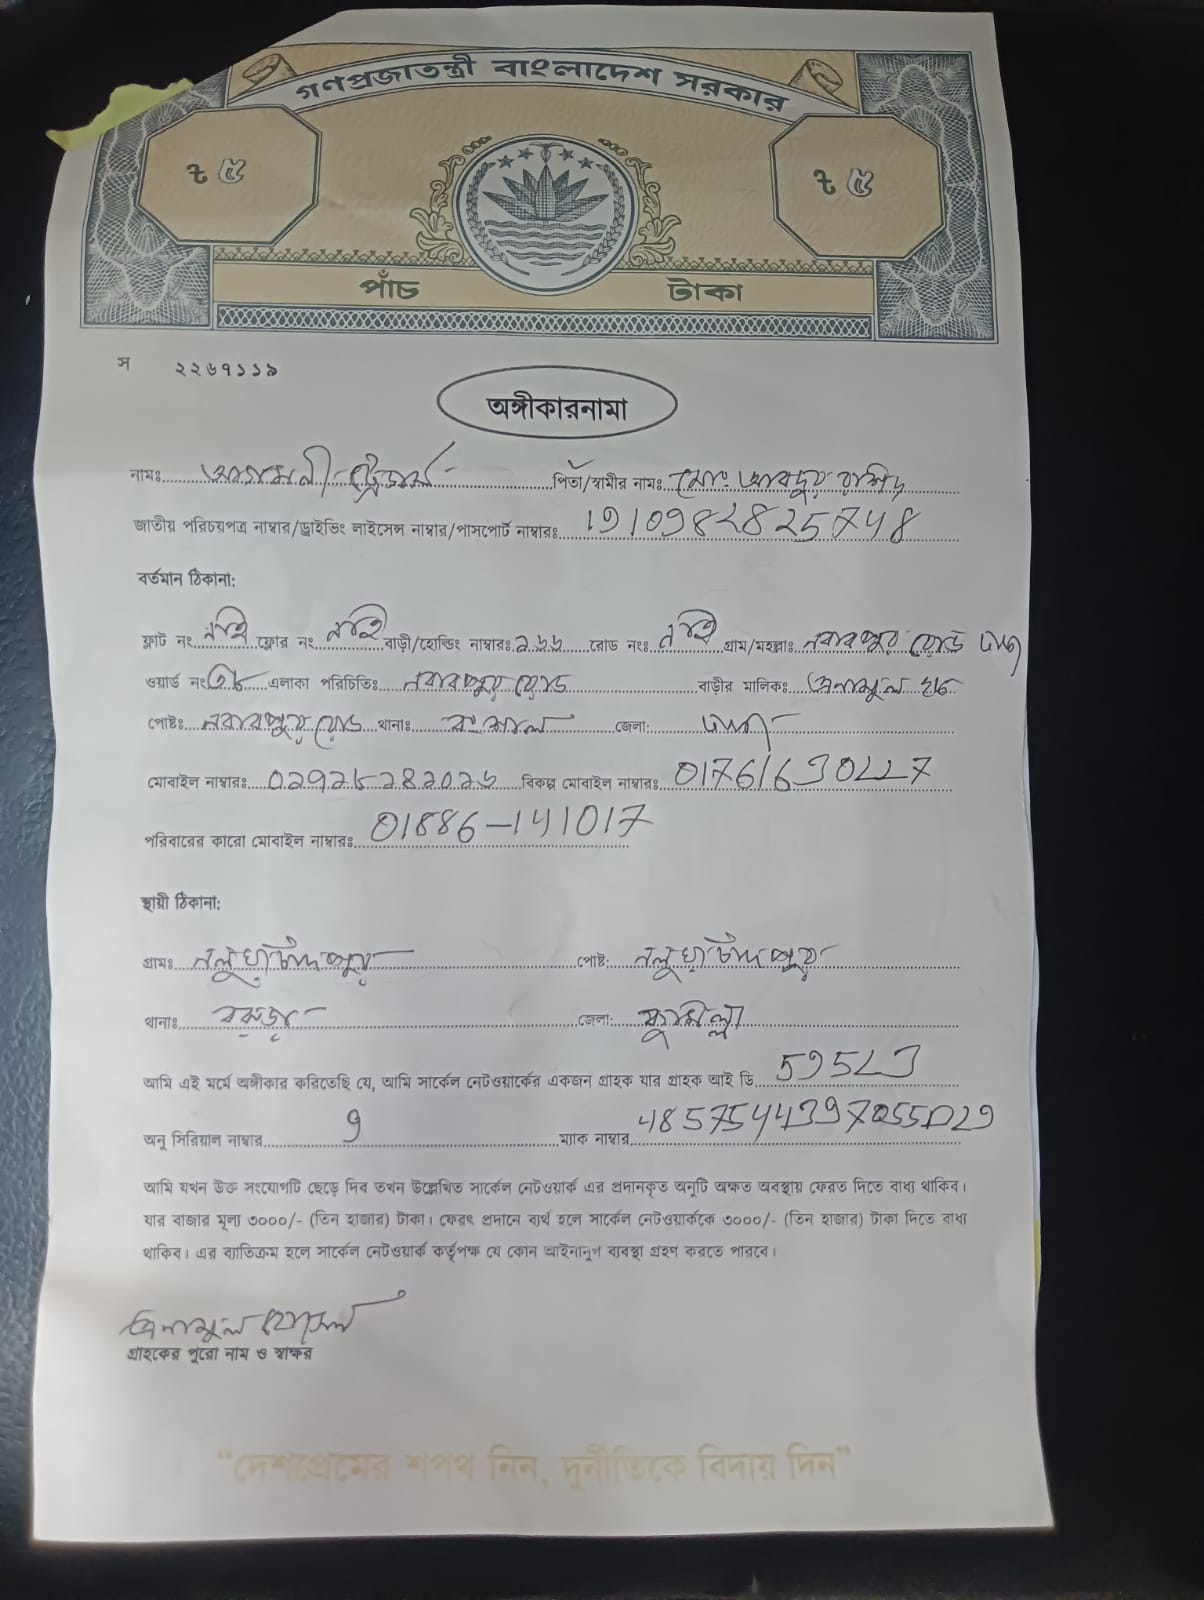 গণপ্রজাতন্ত্রী বাংলাদেশ সরকার
৳ ৫ ৳ ৫
পাঁচ টাকা
স ২২৬৭১১৯
অঙ্গীকারনামা
নামঃ আগমনী ট্রেডার্স পিতা/স্বামীর নামঃ মোঃ আবদুর রশিদ
জাতীয় পরিচয়পত্র নাম্বার/ড্রাইভিং লাইসেন্স নাম্বার/পাসপোর্ট নাম্বারঃ
বর্তমান ঠিকানা:
ফ্লাট নং নাই ফ্লোর নং নাই বাড়ী/হোল্ডিং নাম্বারঃ ২৬৬ রোড নংঃ নাই গ্রাম/মহল্লাঃ নবাবপুর রোড ঢাকা
ওয়ার্ড নংঃ ৩৮ এলাকা পরিচিতিঃ নবাবপুর রোড বাড়ীর মালিকঃ এনামুল হক
পোষ্টঃ নবাবপুর রোড থানাঃ বংশাল জেলা: ঢাকা
মোবাইল নাম্বারঃ বিকল্প মোবাইল নাম্বারঃ
পরিবারের কারো মোবাইল নাম্বারঃ 01886-141017
স্থায়ী ঠিকানা:
গ্রামঃ নলুয়া চাঁদপুর পোষ্ট: নলুয়া চাঁদপুর
থানাঃ বরুড়া জেলা: কুমিল্লা
আমি এই মর্মে অঙ্গীকার করিতেছি যে, আমি সার্কেল নেটওয়ার্কের একজন গ্রাহক যার গ্রাহক আই ডি
অনু সিরিয়াল নাম্বার 9 ম্যাক নাম্বার
আমি যখন উক্ত সংযোগটি ছেড়ে দিব তখন উল্লেখিত সার্কেল নেটওয়ার্ক এর প্রদানকৃত অনুটি অক্ষত অবস্থায় ফেরত দিতে বাধ্য থাকিব।
যার বাজার মূল্য ৩০০০/- (তিন হাজার) টাকা। ফেরৎ প্রদানে ব্যর্থ হলে সার্কেল নেটওয়ার্ককে ৩০০০/- (তিন হাজার) টাকা দিতে বাধ্য
থাকিব। এর ব্যাতিক্রম হলে সার্কেল নেটওয়ার্ক কর্তৃপক্ষ যে কোন আইনানুগ ব্যবস্থা গ্রহণ করতে পারবে।
এনামুল হোসেন
গ্রাহকের পুরো নাম ও স্বাক্ষর
"দেশপ্রেমের শপথ নিন, দুর্নীতিকে বিদায় দিন"